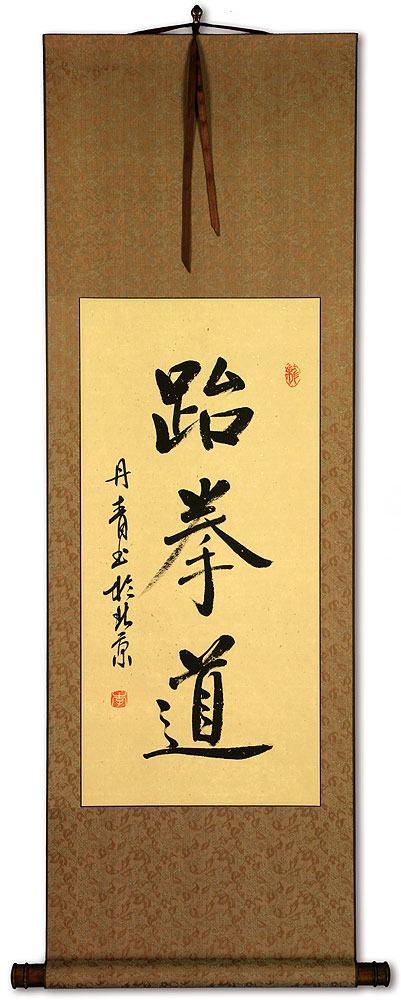 跆拳道
丹青书於北京
李